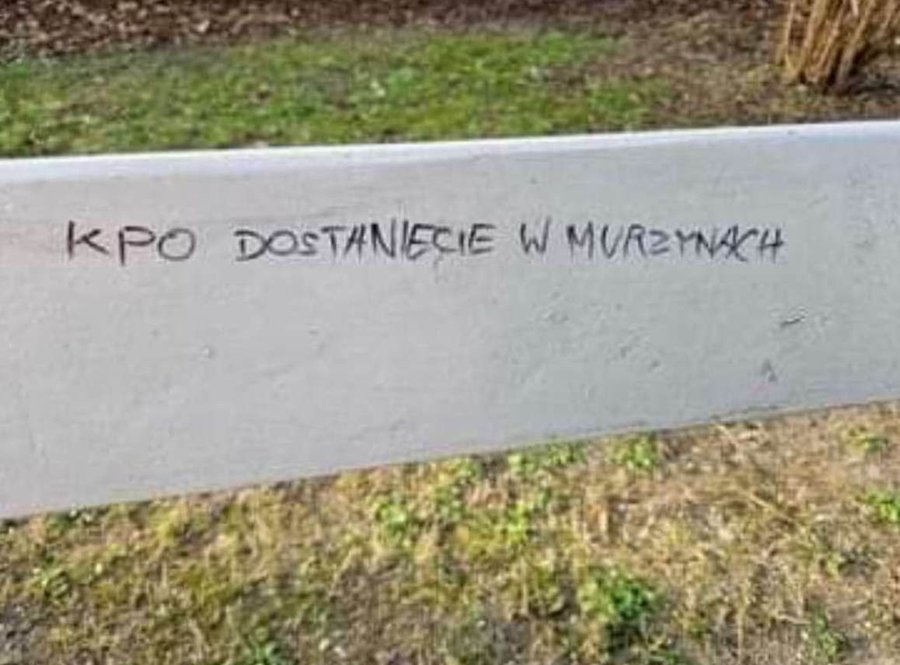 KPO DOSTANIECIE W MURZYNACH